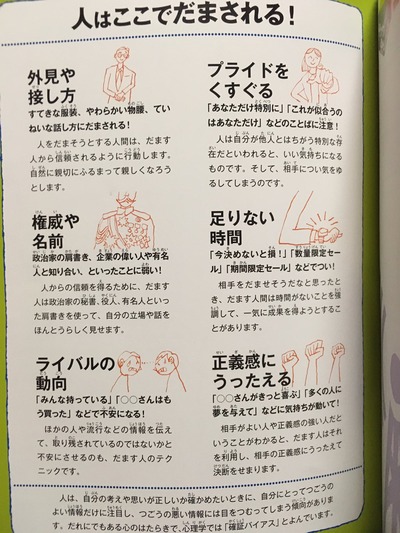 人はここでだまされる！
外見や
接し方
すてきな服装、やわらかい物腰、てい
ねいな話し方にだまされる！
人をだまそうとする人間は、だます
人から信頼されるように行動します。
自然に親切にふるまって親しくなろう
とします。
プライドを
くすぐる
「あなただけ特別に」「これが似合うの
はあなただけ」などのことばに注意！
人は自分が他人とはちがう特別な存
在だといわれると、いい気持ちになる
ものです。そして、相手につい気をゆ
るしてしまうのです。
権威や
名前
政治家の肩書き、企業の偉い人や有名
人と知り合い、といったことに弱い！
人からの信頼を得るために、だます
人は政治家の秘書、役人、有名人といっ
た肩書きを使って、自分の立場や話を
ほんとうらしく見せます。
足りない
時間
「今決めないと損！」「数量限定セー
ル」「期間限定セール」などでつい！
相手をだませそうだなと思ったと
き、だます人間は時間がないことを強
調して、一気に成果を得ようとするこ
とがあります。
ライバルの
動向
「みんな持っている」「〇〇さんはも
う買った」などで不安になる！
ほかの人や流行などの情報を伝え
て、取り残されているのではないかと
不安にさせるのも、だます人のテク
ニックです。
正義感に
うったえる
「〇〇さんがきっと喜ぶ」「多くの人に
夢を与えて」などに気持ちが動いて！
相手がよい人や正義感の強い人だと
いうことがわかると、だます人はそれ
を利用し、相手の正義感にうったえて
決断をせまります。
人は、自分の考えや思いが正しいか確かめたいときに、自分にとってつごうの
よい情報だけに注目し、つごうの悪い情報には目をつむってしまう傾向がありま
す。だれにでもある心のはたらきで、心理学では「確証バイアス」とよんでいます。